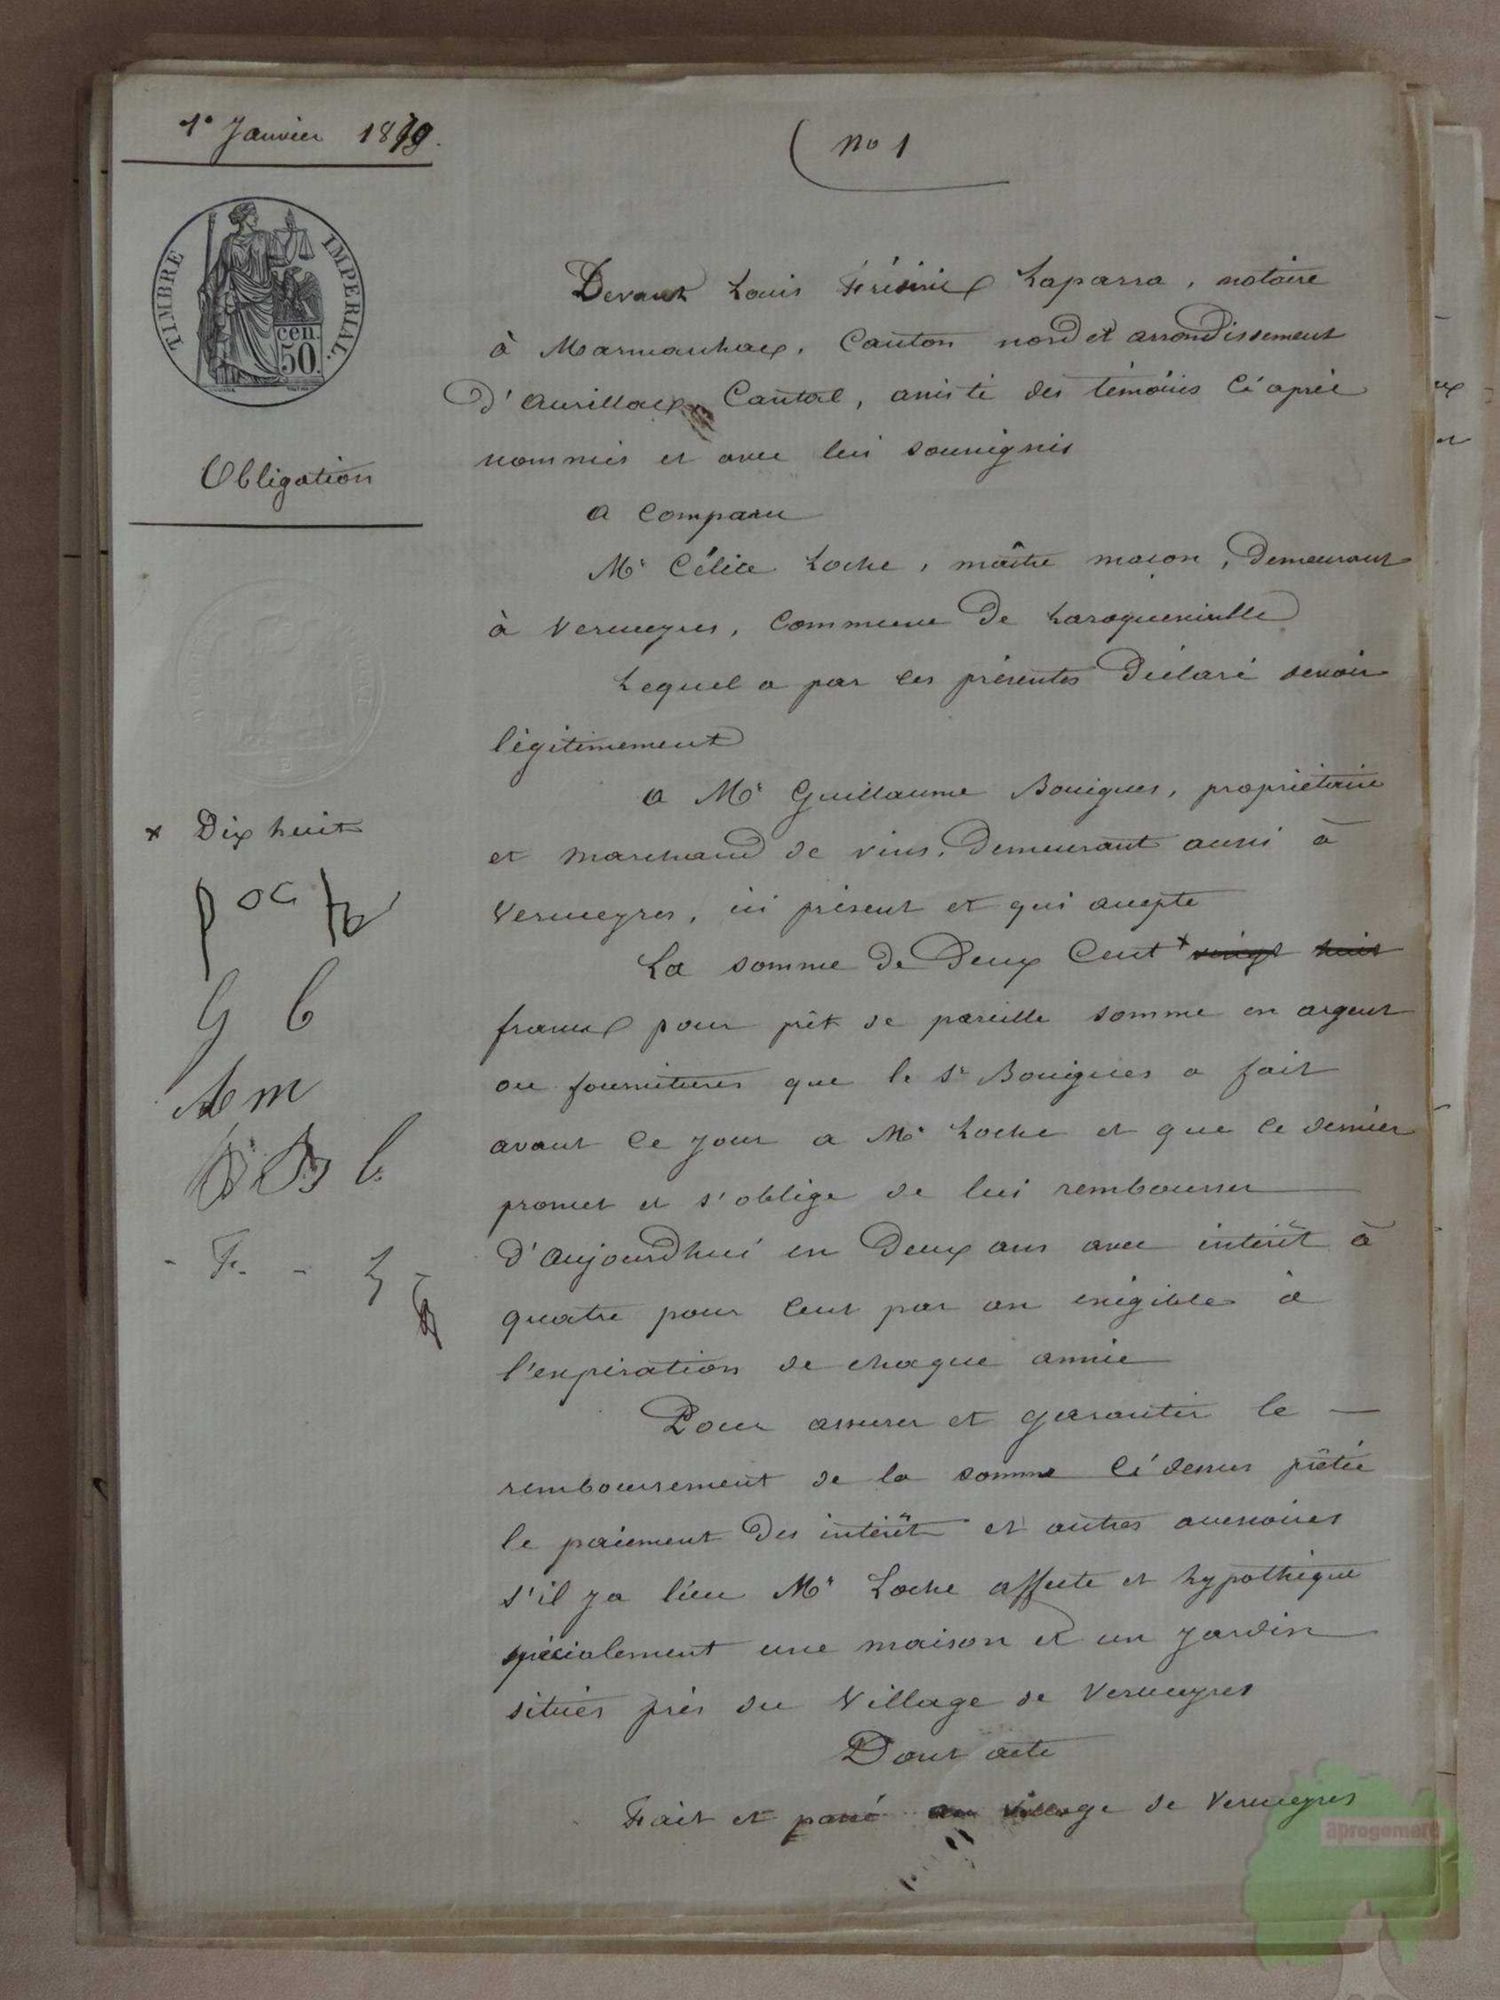 1º Janvier 1870.
nº 1
TIMBRE IMPERIAL.
cen. 50.
Obligation
Devant Louis Frédéric Laparra, notaire
à Marmanhac, Canton nord et arrondissement
d'Aurillac, Cantal, assisté des témoins ci après
nommés et avec lui soussignés
a comparu
Mr Célice Loche, maître maçon, demeurant
à Vermeyres, commune de Laroquevieille
Lequel a par ces présentes déclaré devoir
légitimement
a Mr Guillaume Bouigues, propriétaire
et marchand de vins, demeurant aussi à
Vermeyres, ici présent et qui accepte
La somme de deux cent * vingt huit
francs pour prêt de pareille somme en argent
ou fournitures que le Sr Bouigues a fait
avant ce jour a Mr Loche et que ce dernier
promet et s'oblige de lui rembourser
d'aujourd'hui en deux ans avec intérêt à
quatre pour cent par an exigible à
l'expiration de chaque année
Pour assurer et garantir le
remboursement de la somme ci dessus prêtée
le paiement des intérêt et autres accessoires
s'il y a lieu Mr Loche affecte et hypothèque
spécialement une maison et un jardin
situés près du village de Vermeyres
Dont acte
Fait et passé au village de Vermeyres
* Dix huit
G b
F. L
aprogemere